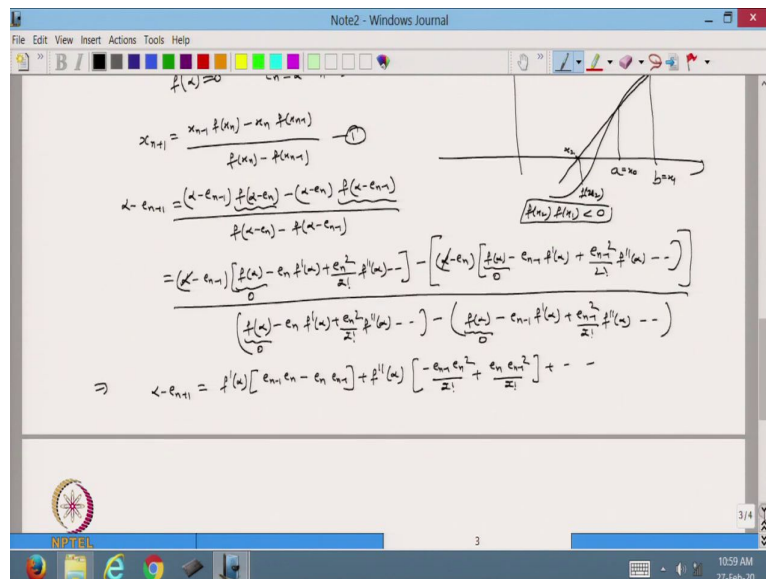 Note2 - Windows Journal
File Edit View Insert Actions Tools Help
B I
f(α)=0
x₂
a=x₀
b=x₁
f(x₂)
f(x₂) f(x₁) < 0
xₙ₊₁ = (xₙ₋₁ f(xₙ) - xₙ f(xₙ₋₁)) / (f(xₙ) - f(xₙ₋₁)) - ①
α - eₙ₊₁ = ((α-eₙ₋₁) f(α-eₙ) - (α-eₙ) f(α-eₙ₋₁)) / (f(α-eₙ) - f(α-eₙ₋₁))
= (α-eₙ₋₁) [f(α) - eₙ f'(α) + eₙ²/2! f''(α) --] - [(α-eₙ) [f(α) - eₙ₋₁ f'(α) + eₙ₋₁²/2! f''(α) --)]
0 0
(f(α) - eₙ f'(α) + eₙ²/2! f''(α) --) - (f(α) - eₙ₋₁ f'(α) + eₙ₋₁²/2! f''(α) --)
0 0
⇒ α-eₙ₊₁ = f'(α) [eₙ₋₁ eₙ - eₙ eₙ₋₁] + f''(α) [-eₙ₋₁ eₙ²/2! + eₙ eₙ₋₁²/2!] + - -
NPTEL
3
3/4
10:59 AM
27-Feb-20